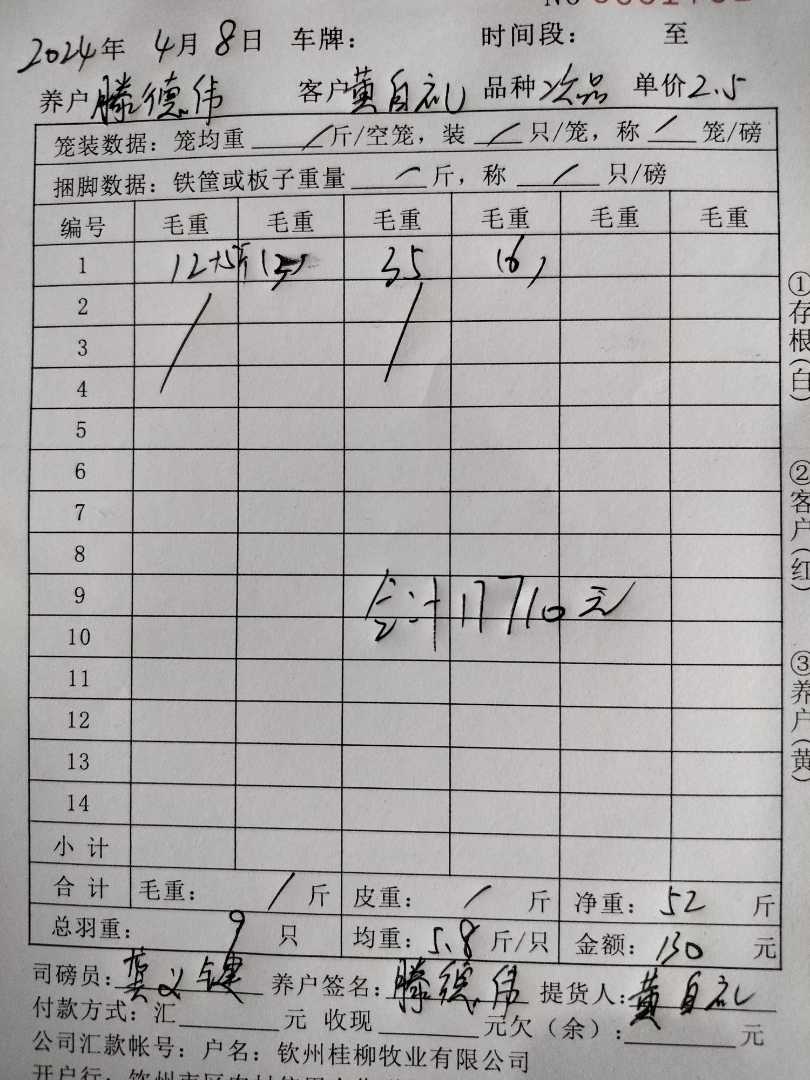 No
2024年 4月 8日 车牌: 时间段: 至
养户 滕德伟 客户 黄自礼 品种 次品 单价 2.5
笼装数据: 笼均重 / 斤/空笼, 装 / 只/笼, 称 / 笼/磅
捆脚数据: 铁筐或板子重量 / 斤, 称 / 只/磅
编号 毛重 毛重 毛重 毛重 毛重 毛重
1 35
2
3
4
5
6
7
8
9
合计17710元
10
11
12
13
14
小计
合计 毛重: / 斤 皮重: / 斤 净重: 52 斤
总羽重: 9 只 均重: 5.8 斤/只 金额: 130 元
司磅员: 养户签名: 滕德伟 提货人: 黄自礼
付款方式: 汇 元 收现 元欠(余): 元
公司汇款帐号: 户名: 钦州桂柳牧业有限公司
开户行:
①存根(白)
②客户(红)
③养户(黄